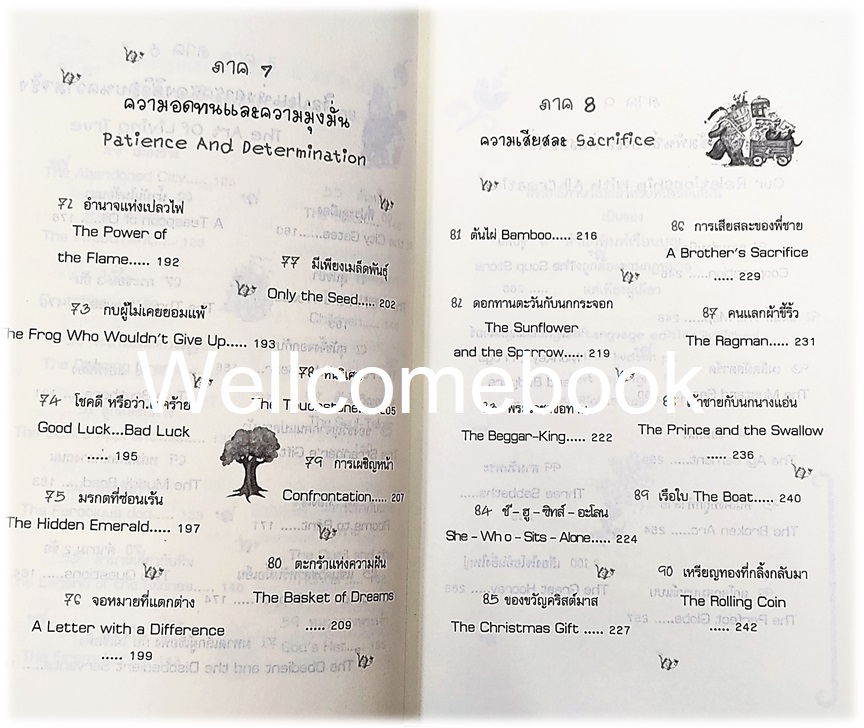 ภาค 7
ความอดทนและความมุ่งมั่น
Patience And Determination
72 อำนาจแห่งเปลวไฟ
The Power of
the Flame..... 192
73 กบผู้ไม่เคยยอมแพ้
The Frog Who Wouldn't Give Up..... 193
74 โชคดี
Good Luck...Bad Luck
..... 195
75 มรกตที่ซ่อนเร้น
The Hidden Emerald..... 197
76 จดหมายที่แตกต่าง
A Letter with a Difference
..... 199
77 มีเพียงเมล็ดพันธุ์
Only the Seed..... 202
78
The Touchstone... 205
79 การเผชิญหน้า
Confrontation..... 207
80 ตะกร้าแห่งความฝัน
The Basket of Dreams
..... 209
ภาค 8
ความเสียสละ Sacrifice
81 ต้นไผ่ Bamboo..... 216
82 ดอกทานตะวันกับนกกระจอก
The Sunflower
and the Sparrow..... 219
The Beggar-King..... 222
84 ชี - ฮู - ซิทส์ - อะโลน
She - Who - Sits - Alone..... 224
85 ของขวัญคริสต์มาส
The Christmas Gift ..... 227
86 การเสียสละของพี่ชาย
A Brother's Sacrifice
..... 229
87 คนแลกผ้าขี้ริ้ว
The Ragman..... 231
เจ้าชายกับนกนางแอ่น
The Prince and the Swallow
..... 236
89 เรือใบ The Boat..... 240
90 เหรียญทองที่กลิ้งกลับมา
The Rolling Coin
..... 242
Wellcomebook